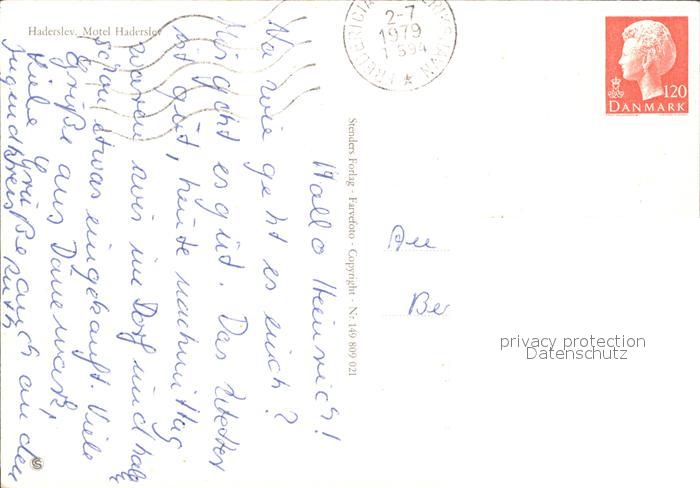 Haderslev, Motel Haderslev
Hallo Heinrich!
Na wie geht es euch?
Mir geht es gut. Das Wetter
ist gut, heute nachmittag
waren wir im Dorf und hab
schon etwas eingekauft. Viele
Grüße aus Dänemark,
Viele Grüße auch an den
Jugendkreis
Stenders Forlag - Farvefoto - Copyright - Nr 149 809 021
FREDERICIA
2-7
1979
1 594
120
DANMARK
An
Be
privacy protection
Datenschutz